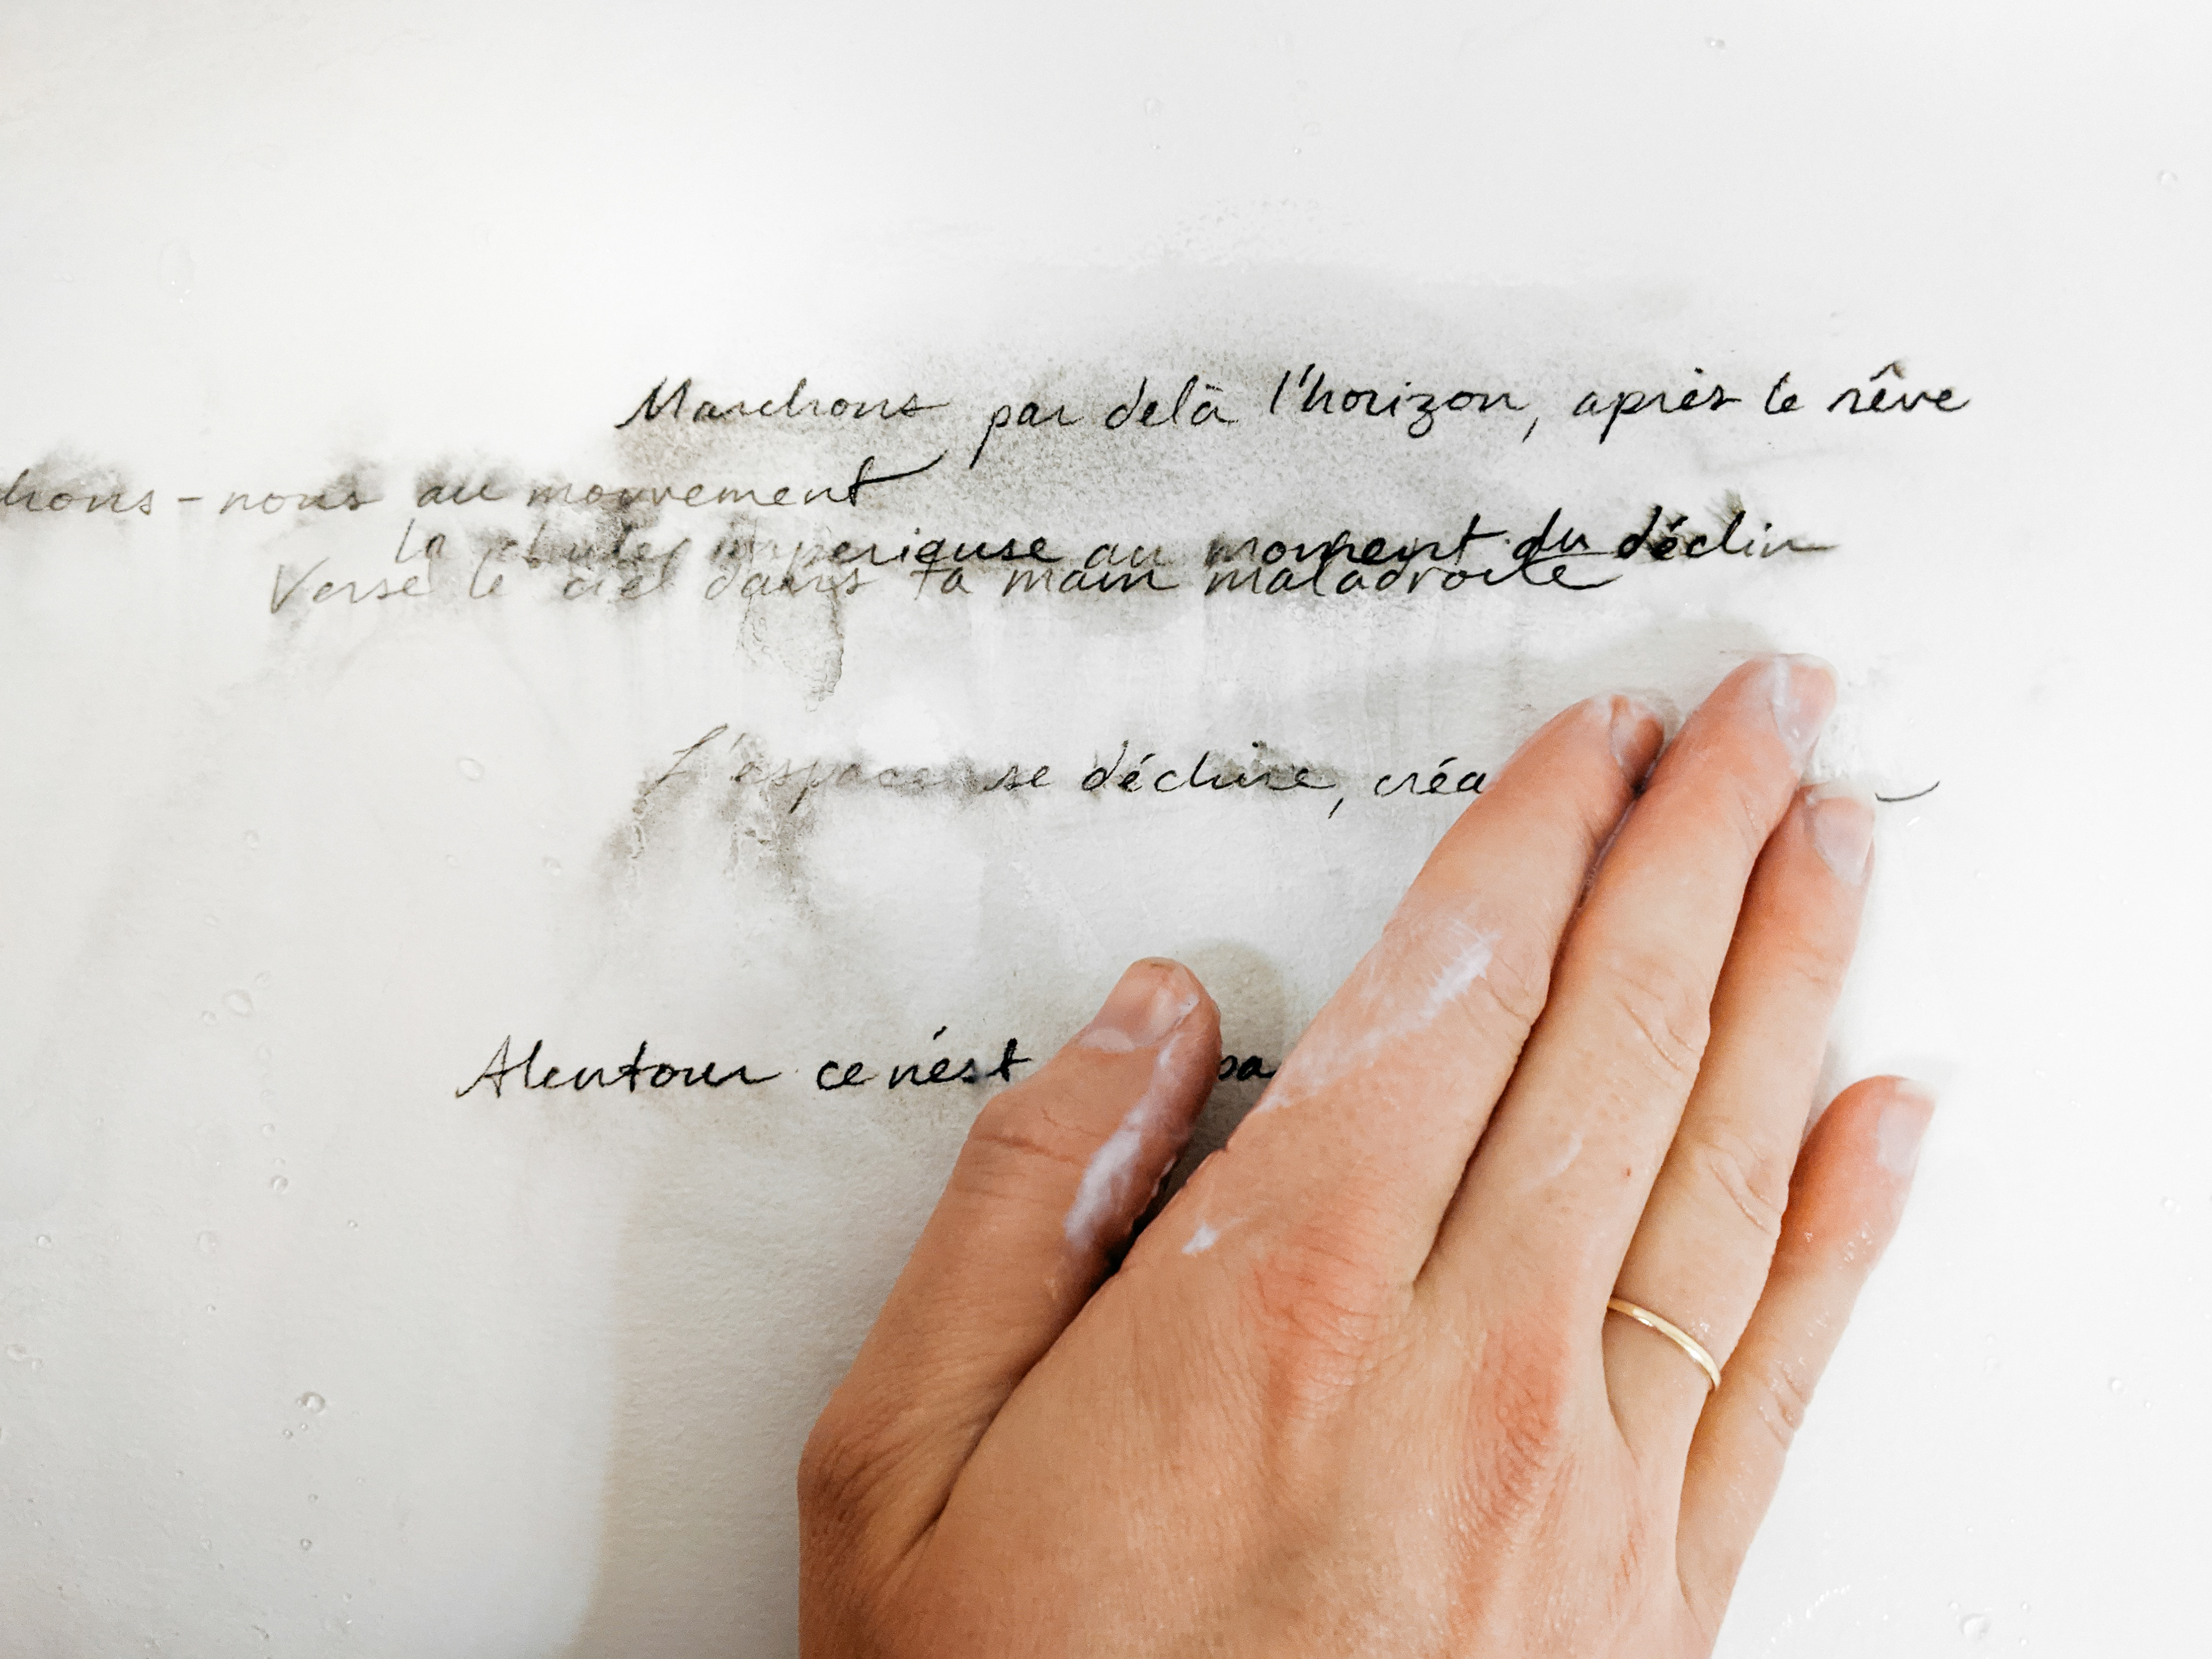 Marchons par delà l'horizon, après le rêve
chons-nous au mouvement
la chute impérieuse au moment du déclin
Verse le ciel dans ta main maladroite
L'espace se déchire, créa
Alentour ce n'est pa